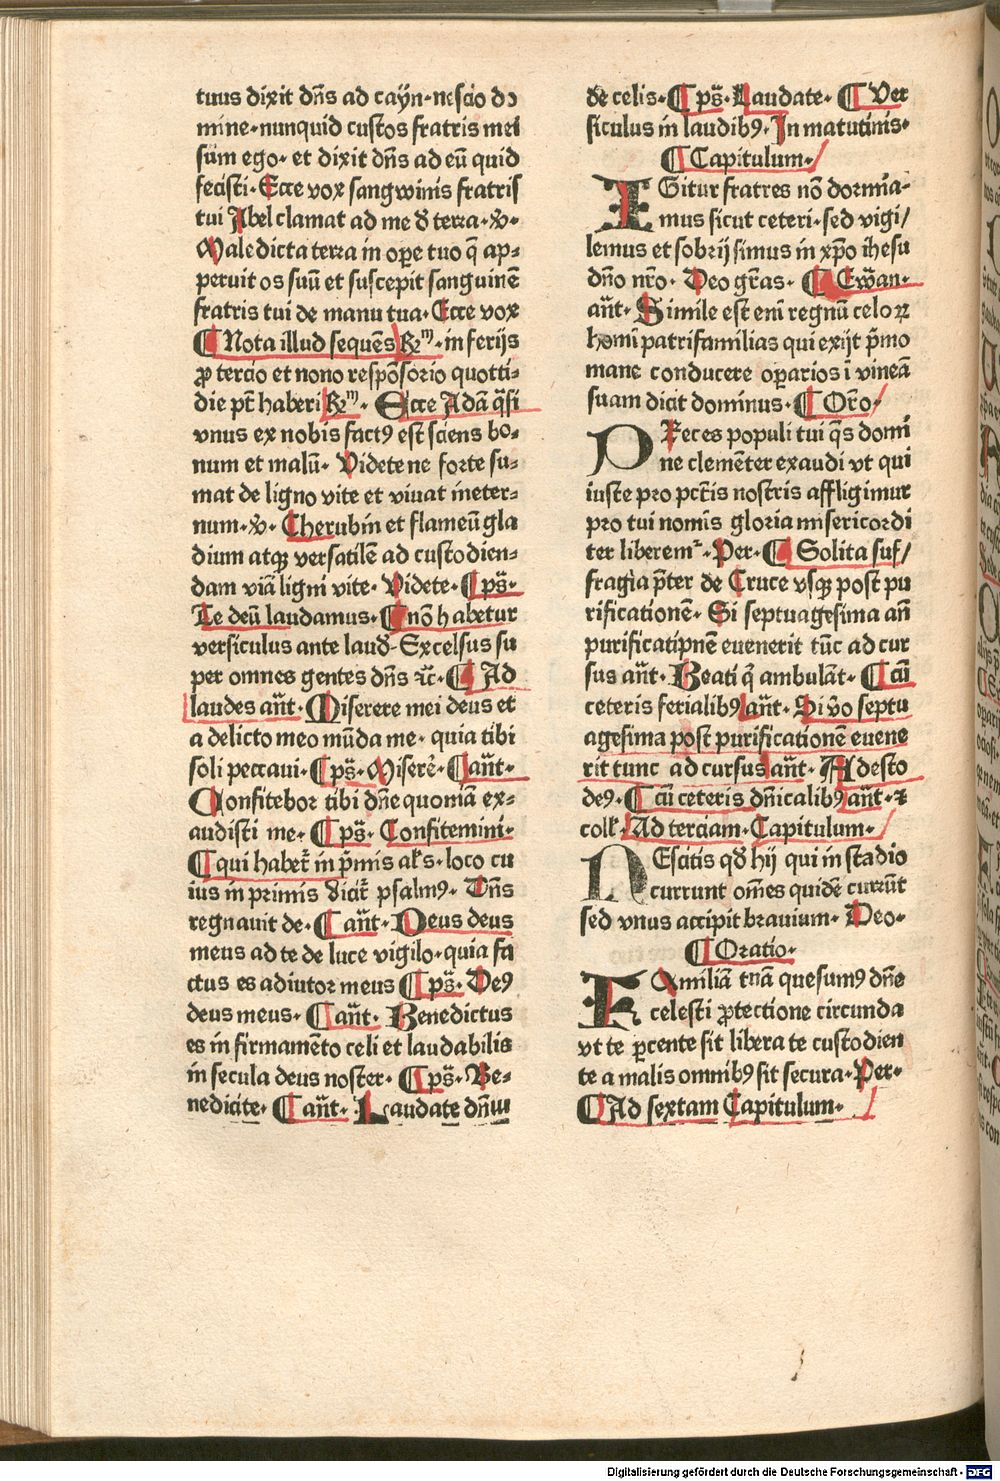 tuus dixit dn̄s ad cayn·nescio do
mine·nunquid custos fratris mei
sum ego· et dixit dn̄s ad eū quid
fecisti· Ecce vox sangwinis fratris
tui Abel clamat ad me d̄ terra·v̄·
Maledicta terra in oꝑe tuo q̄ ap-
peruit os suū et suscepit sanguinē
fratris tui de manu tua· Ecce vox
¶ Nota illud sequēs R̄m̄·in ferijs
ꝓ tercio et nono respōsorio quotti-
die pt̄ haberi R̄m̄· Ecce Adā q̄si
vnus ex nobis factꝰ est sciens bo-
num et malū· Videte ne forte su-
mat de ligno vite et viuat in eter-
num·v̄· Cherubin et flameū gla
dium atqꝫ versatilē ad custodien-
dam viā ligni vite· Videte· ¶ ps̄·
Te deū laudamus· ¶ nō habetur
versiculus ante laud̄· Excelsus su
per omnes gentes dn̄s ⁊c̄· ¶ Ad
laudes an̄t· Miserere mei deus et
a delicto meo mūda me· quia tibi
soli peccaui· ¶ ps̄· Miserē· ¶ an̄t·
Confitebor tibi dn̄e quoniā ex-
audisti me· ¶ ps̄· Confitemini·
¶ qui habet̄ in p̄mis al̄s·loco cu
ius in primis dicit̄ psalmꝰ· Dn̄s
regnauit de· ¶ an̄t· Deus deus
meus ad te de luce vigilo·quia fa
ctus es adiutor meus ¶ ps̄· Deꝰ
deus meus· ¶ an̄t· Benedictus
es in firmamēto celi et laudabilis
in secula deus noster· ¶ ps̄· Be-
nedicite· ¶ an̄t· Laudate dn̄m
de celis· ¶ ps̄· Laudate· ¶ Ver
siculus in laudibꝰ· In matutinis·
¶ Capitulum·
IGitur fratres nō dormia-
mus sicut ceteri·sed vigi/
lemus et sobrij simus in xp̄o ihesu
dn̄o nr̄o· Deo gr̄as· ¶ Ewan·
an̄t· Simile est eni regnū celoꝝ
homi patrifamilias qui exijt p̄mo
mane conducere oꝑarios ī vineā
suam dicit dominus· ¶ Or̄o·
PReces populi tui q̄s domi
ne clemēter exaudi vt qui
iuste pro pct̄is nostris affligimur
pro tui nomis gloria misericordi
ter liberem̄· Per· ¶ Solita suf/
fragia p̄ter de Cruce vsqꝫ post pu
rificationē· Si septuagesima an̄
purificatipnē euenerit tūc ad cur
sus an̄t· Beati q̄ ambulāt· ¶ cū
ceteris ferialibꝰ an̄t· Si v̄o septu
agesima post purificationē euene
rit tunc ad cursus an̄t· Adesto
deꝰ· ¶ Cū ceteris dn̄icalibꝰ an̄t·⁊
coll̄· Ad terciam· Capitulum·
NEscitis qd̄ hij qui in stadio
currunt om̄es quidē currūt
sed vnus accipit brauium· Deo·
¶ Oratio·
FAmiliā tuā quesumꝰ dn̄e
celesti ꝓtectione circunda
vt te ꝑcente sit libera te custodien
te a malis omnibꝰ sit secura· Per·
¶ Ad sextam Capitulum·
Digitalisierung gefördert durch die Deutsche Forschungsgemeinschaft - DFG